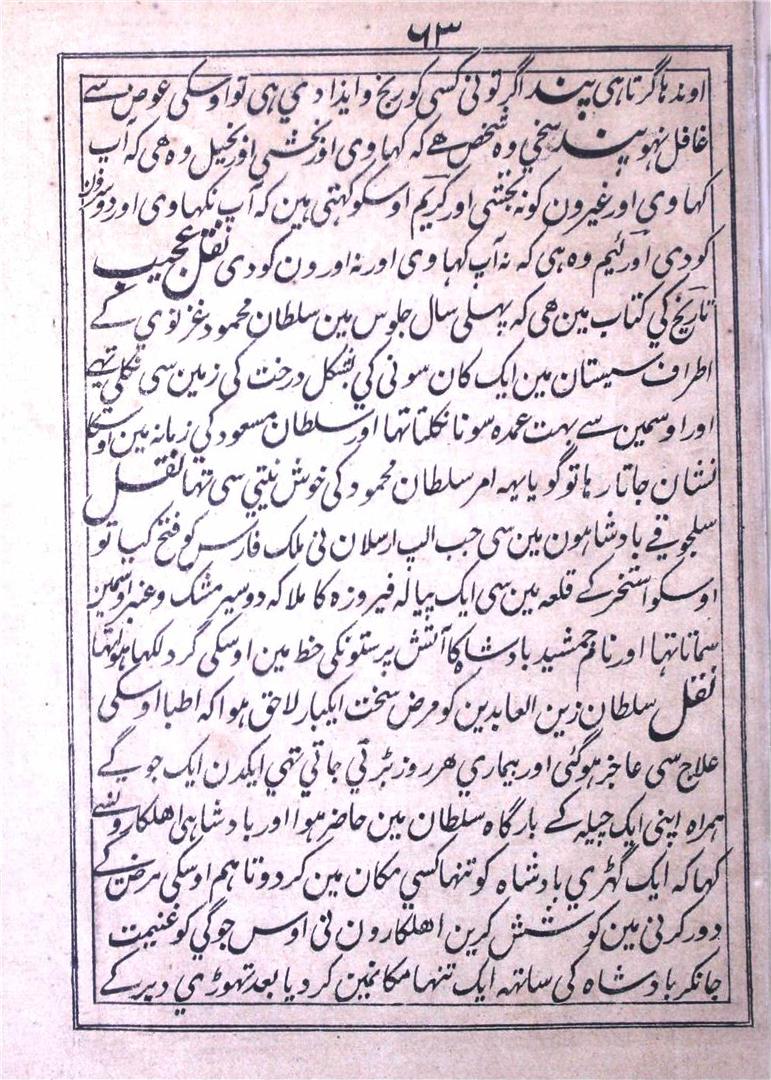 ۶۳
اوندہا گرتا ہی پند اگر تونی کسی کو رنج و ایذا دي ہی تو اوسکی عوض سے
غافل نہو پند سخي وہ شخص ھے کہ کہاوی اور بخشی اور بخیل وہ ھی کہ آپ
کہاوی اور غیرون کو نہ بخشی اور کریم اوسکو کہتی ہین کہ آپ نکہاوی اور دوسرون
کو دی اور لئیم وہ ہی کہ نہ آپ کہاوی اور نہ اورون کو دی نقل عجیب
تاریخ کي کتاب مین ھی کہ پہلی سال جلوس مین سلطان محمود غزنوي کے
اطراف سیستان مین ایک کان سونی کي بشکل درخت کی زمین سی نکلی تہي
اور اوسمین سے بہت عمدہ سونا نکلتا تہا اور سلطان مسعود کي زمانہ مین اوسکا
نشان جاتا رہا تو گویا یہہ امر سلطان محمود کی خوش نیتي سی تہا نقل
سلجوقے بادشاہون مین سی جب الپ ارسلان نی ملک فارس کو فتح کیا تو
اوسکو استخر کے قلعہ مین سی ایک پیالہ فیروزہ کا ملا کہ دو سیر مشک و عنبر اوسمین
سماتا تہا اور نام جمشید بادشاہ کا آتش پرستونکی خط مین اوسکی گرد لکہا ہوا تہا
نقل سلطان زین العابدین کو مرض سخت ایکبار لاحق ہوا کہ اطبا اوسکی
علاج سی عاجز ہو گئی اور بیماري ھر روز بڑتي جاتي تہي ایکدن ایک جوگے
ہمراہ اپنی ایک چیلہ کے بارگاہ سلطان مین حاضر ہوا اور بادشاہی اھلکارونسے
کہا کہ ایک گہڑي بادشاہ کو تنہا کسي مکان مین کر دو تا ہم اوسکی مرض کے
دور کرنی مین کوشش کرین اھلکارون نی اوس جوگي کو غنیمت
جانکر بادشاہ کی ساتہہ ایک تنہا مکانمین کر دیا بعد تہوڑي دیر کے